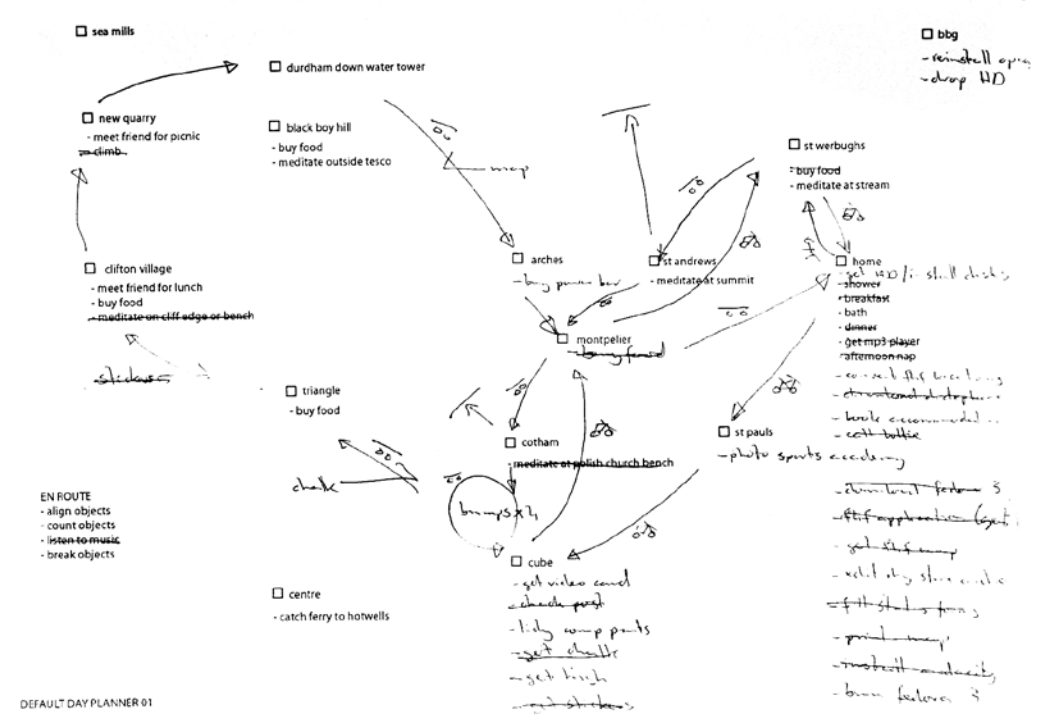 sea mills
bbg
- reinstall
- drop HD
durdham down water tower
new quarry
- meet friend for picnic
- climb
black boy hill
- buy food
- meditate outside tesco
map
st werbughs
- buy food
- meditate at stream
clifton village
- meet friend for lunch
- buy food
- meditate on cliff edge or bench
stickers
arches
- buy power bar
st andrews
- meditate at summit
home
- get HD / install
- shower
- breakfast
- bath
- dinner
- get mp3 player
- afternoon nap
- book
montpelier
- buy food
triangle
- buy food
chalk
cotham
- meditate at polish church bench
bumps x 4
st pauls
- photo sports academy
- download fedora 3
- print map
- install audacity
- burn fedora 3
EN ROUTE
- align objects
- count objects
- listen to music
- break objects
cube
- get video card
- check post
- tidy comp parts
- get chalk
- get
- get stickers
centre
- catch ferry to hotwells
DEFAULT DAY PLANNER 01